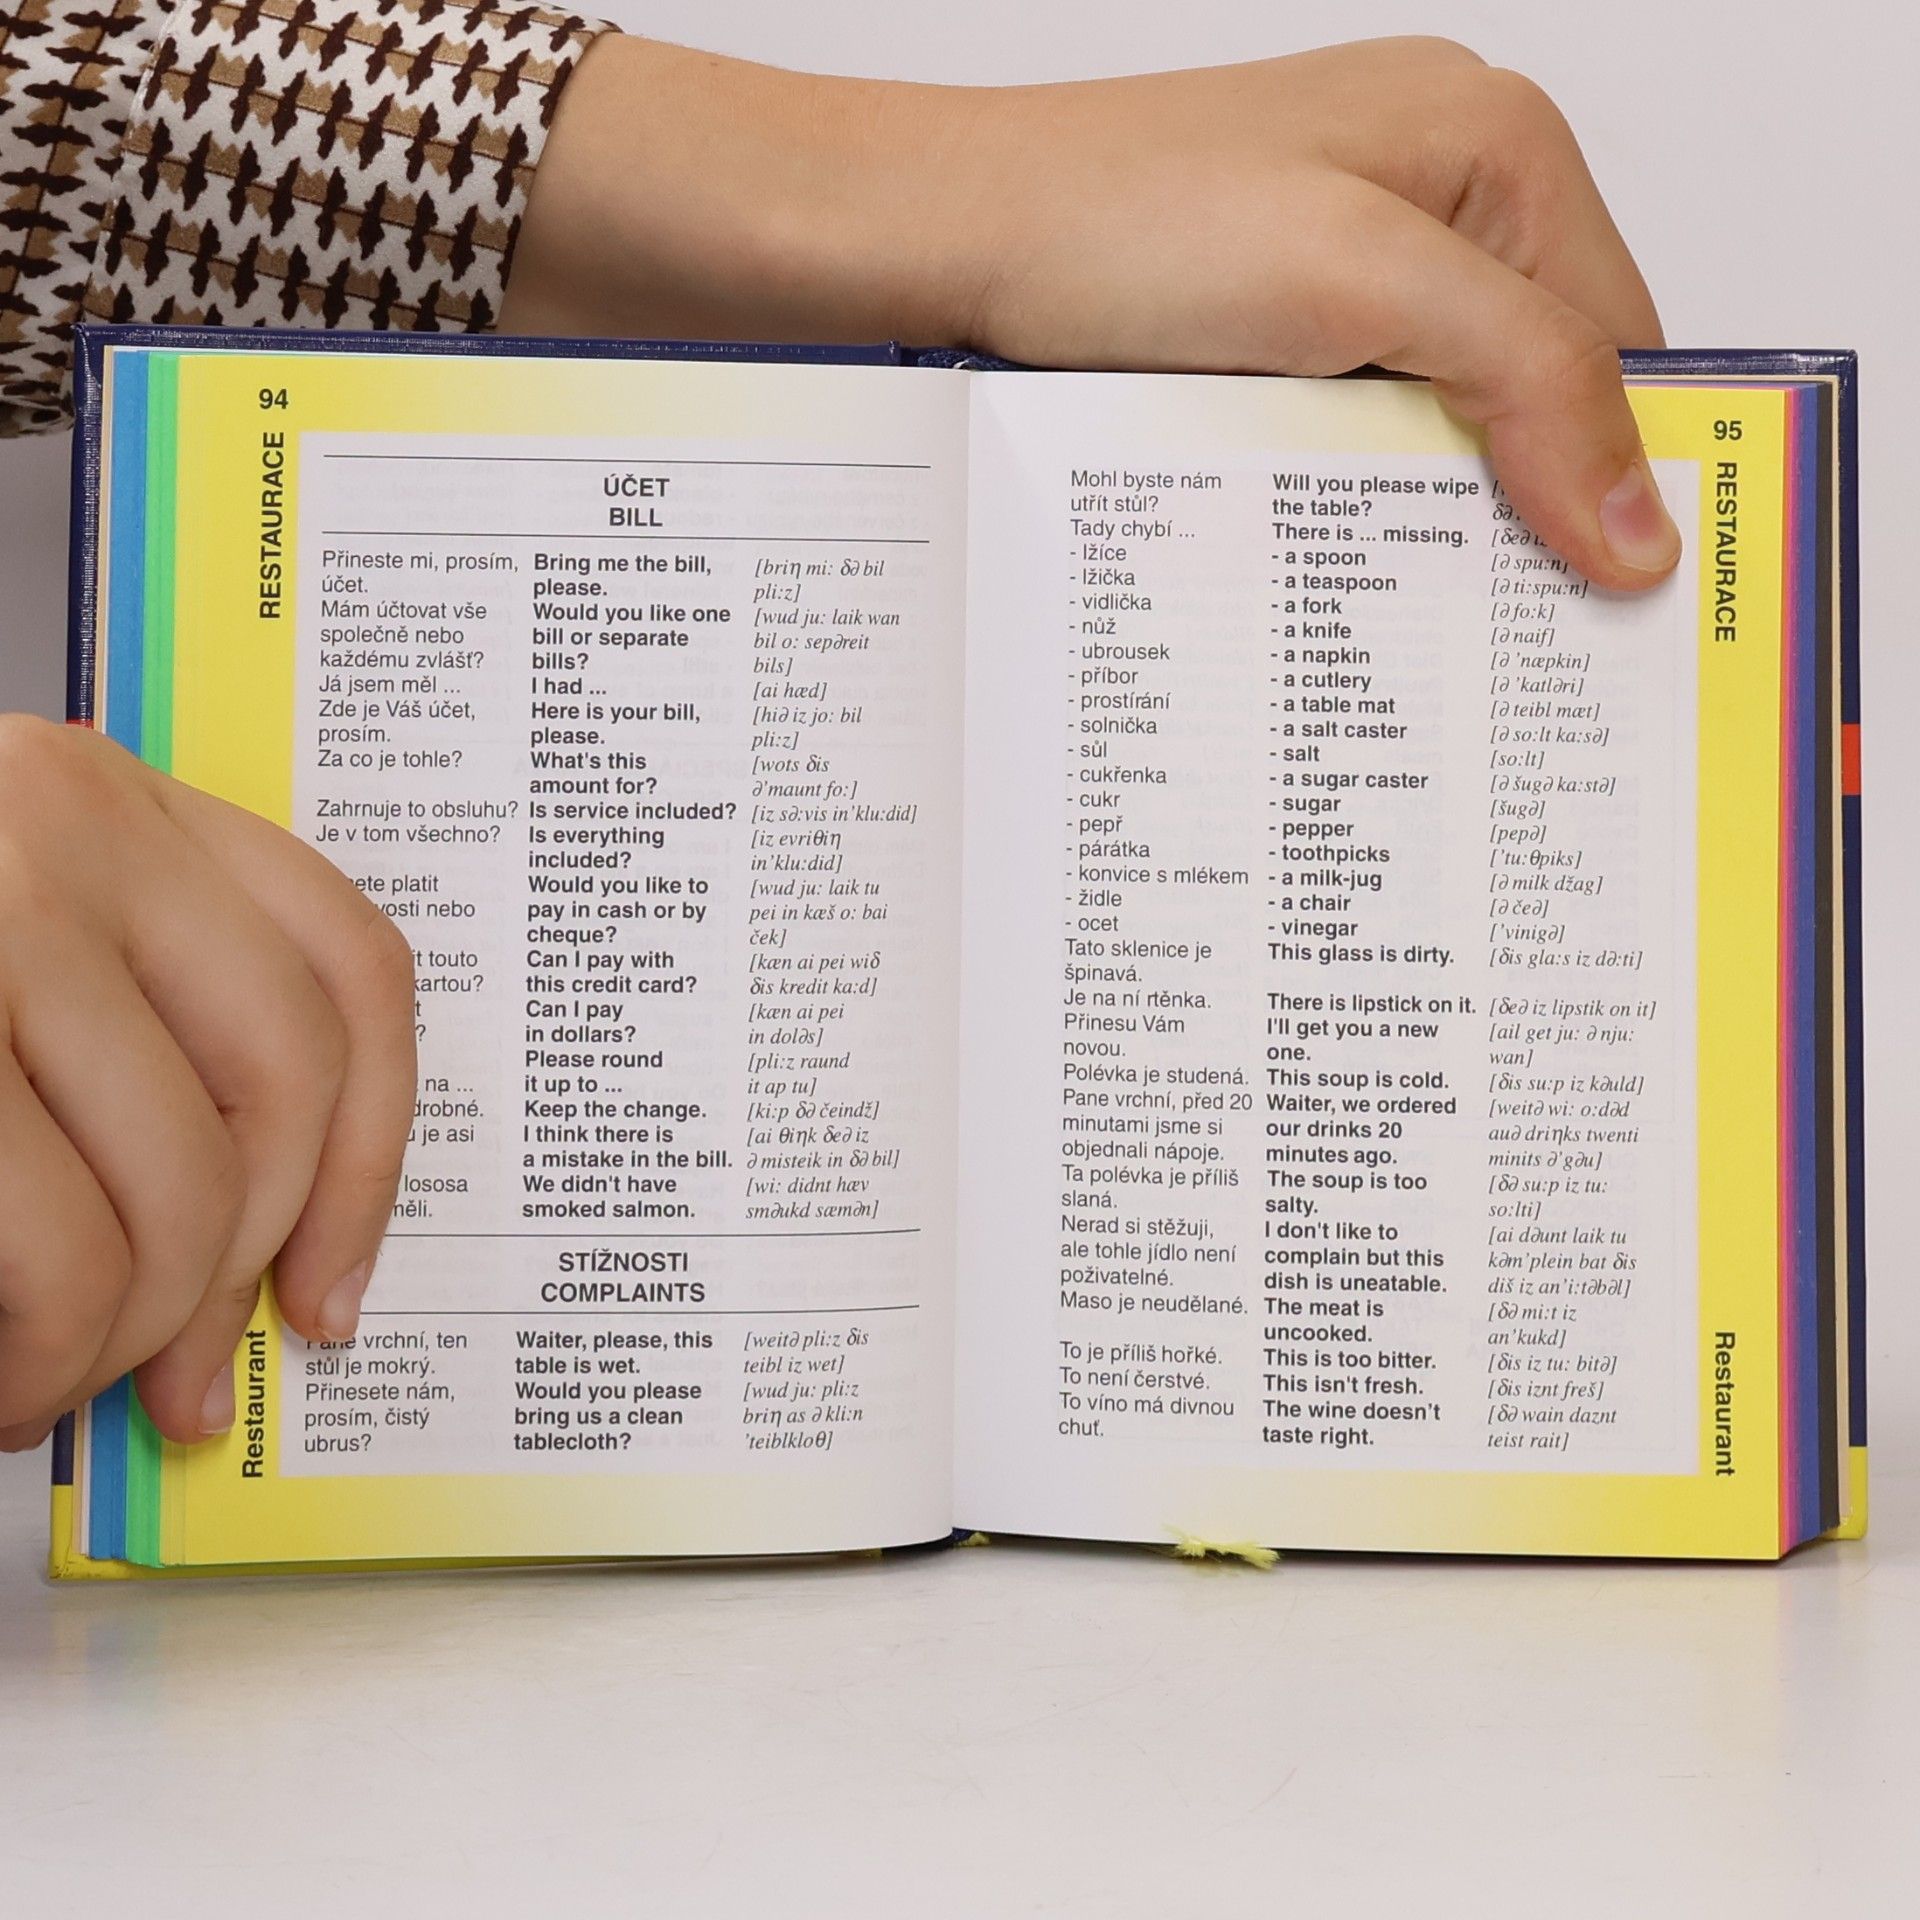 94
RESTAURACE
ÚČET
BILL
Přineste mi, prosím, Bring me the bill, [briŋ mi: δə bil
účet. please. pli:z]
Mám účtovat vše Would you like one [wud ju: laik wan
společně nebo bill or separate bil o: sepəreit
každému zvlášť? bills? bils]
Já jsem měl ... I had ... [ai hæd]
Zde je Váš účet, Here is your bill, [hiə iz jo: bil
prosím. please. pli:z]
Za co je tohle? What's this [wots δis
amount for? ə'maunt fo:]
Zahrnuje to obsluhu? Is service included? [iz sə:vis in'klu:did]
Je v tom všechno? Is everything [iz evriθiŋ
included? in'klu:did]
platit Would you like to [wud ju: laik tu
nebo pay in cash or by pei in kæš o: bai
cheque? ček]
touto Can I pay with [kæn ai pei wiδ
this credit card? δis kredit ka:d]
Can I pay [kæn ai pei
in dollars? in doləs]
Please round [pli:z raund
na ... it up to ... it ap tu]
Keep the change. [ki:p δə čeindž]
je asi I think there is [ai θiŋk δeə iz
a mistake in the bill. ə misteik in δə bil]
lososa We didn't have [wi: didnt hæv
smoked salmon. sməukd sæmən]
STÍŽNOSTI
COMPLAINTS
Pane vrchní, ten Waiter, please, this [weitə pli:z δis
stůl je mokrý. table is wet. teibl iz wet]
Přinesete nám, Would you please [wud ju: pli:z
prosím, čistý bring us a clean briŋ as ə kli:n
ubrus? tablecloth? 'teiblkloθ]
Restaurant
95
RESTAURACE
Mohl byste nám Will you please wipe
utřít stůl? the table? δə
Tady chybí ... There is ... missing. [δeə
- lžíce - a spoon [ə spu:n]
- lžička - a teaspoon [ə ti:spu:n]
- vidlička - a fork [ə fo:k]
- nůž - a knife [ə naif]
- ubrousek - a napkin [ə 'næpkin]
- příbor - a cutlery [ə 'katləri]
- prostírání - a table mat [ə teibl mæt]
- solnička - a salt caster [ə so:lt ka:sə]
- sůl - salt [so:lt]
- cukřenka - a sugar caster [ə šugə ka:stə]
- cukr - sugar [šugə]
- pepř - pepper [pepə]
- párátka - toothpicks ['tu:θpiks]
- konvice s mlékem - a milk-jug [ə milk džag]
- židle - a chair [ə čeə]
- ocet - vinegar ['vinigə]
Tato sklenice je This glass is dirty. [δis gla:s iz də:ti]
špinavá.
Je na ní rtěnka. There is lipstick on it. [δeə iz lipstik on it]
Přinesu Vám I'll get you a new [ail get ju: ə nju:
novou. one. wan]
Polévka je studená. This soup is cold. [δis su:p iz kəuld]
Pane vrchní, před 20 Waiter, we ordered [weitə wi: o:dəd
minutami jsme si our drinks 20 auə driŋks twenti
objednali nápoje. minutes ago. minits ə'gəu]
Ta polévka je příliš The soup is too [δə su:p iz tu:
slaná. salty. so:lti]
Nerad si stěžuji, I don't like to [ai dəunt laik tu
ale tohle jídlo není complain but this kəm'plein bat δis
poživatelné. dish is uneatable. diš iz an'i:təbəl]
Maso je neudělané. The meat is [δə mi:t iz
uncooked. an'kukd]
To je příliš hořké. This is too bitter. [δis iz tu: bitə]
To není čerstvé. This isn't fresh. [δis iznt freš]
To víno má divnou The wine doesn't [δə wain daznt
chuť. taste right. teist rait]
Restaurant